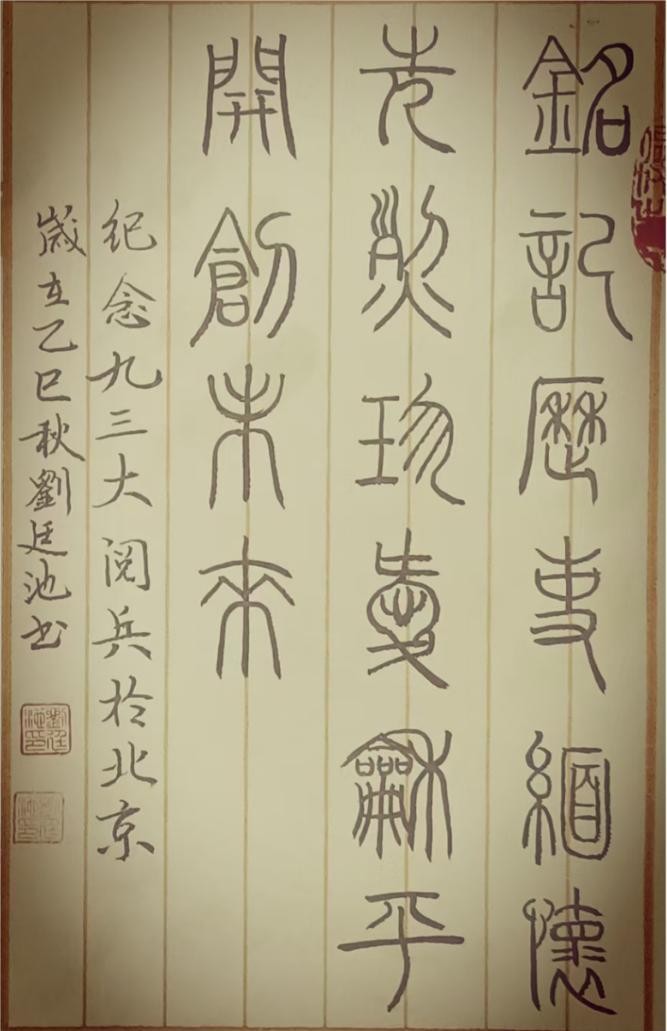 銘記歷史緬懷
先烈珍愛龢平
開創未來
纪念九三大阅兵於北京
歲在乙巳秋劉廷池书